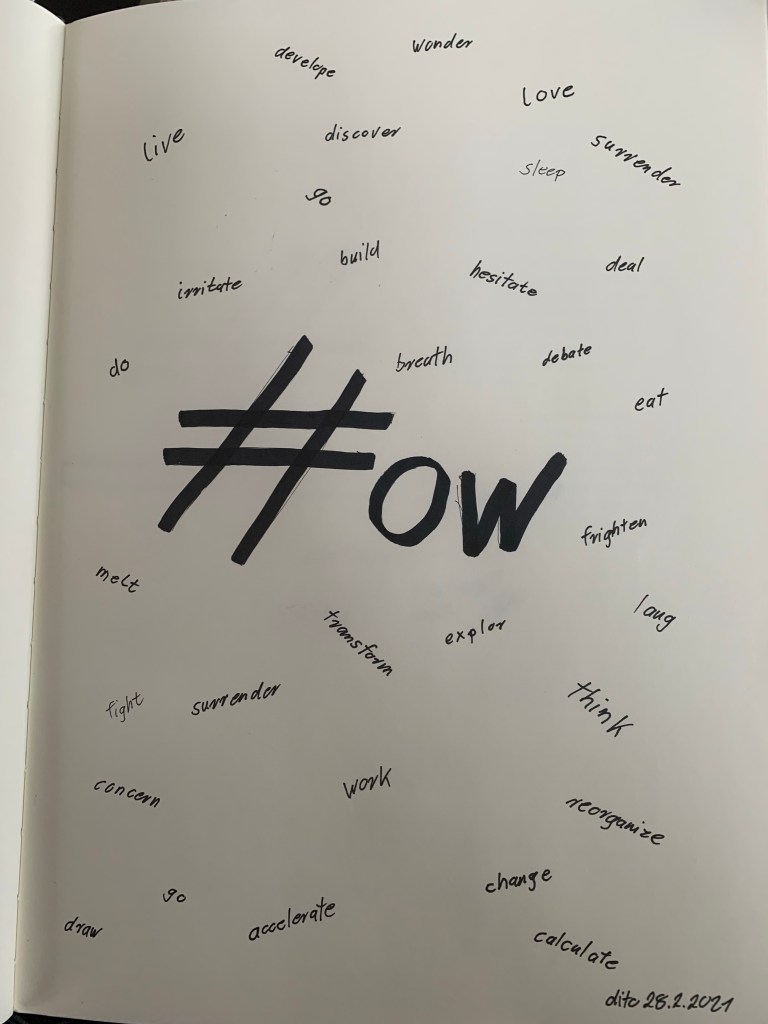 wonder
develope
love
discover
live
surrender
sleep
go
build
deal
hesitate
irritate
breath
debate
do
eat
#ow
frighten
melt
laug
explor
transform
surrender
fight
think
work
concern
reorganize
change
go
accelerate
draw
calculate
dito 28.2.2021